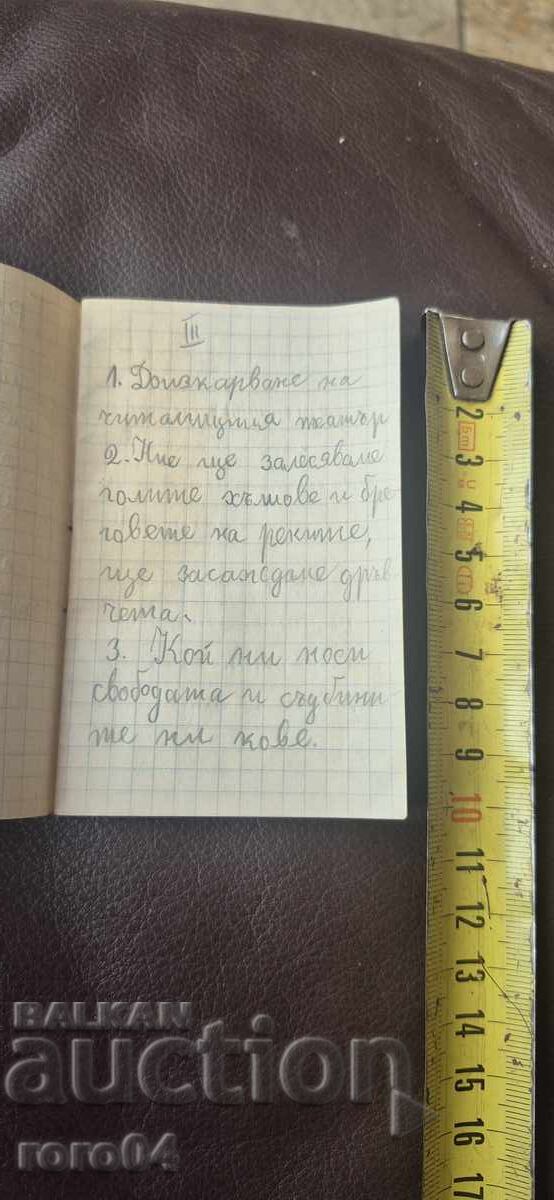 III
1. Доизкарване на
читалищния театър
2. Ние ще залесяваме
голите хълмове и бре-
говете на реките,
ще засаждаме дръв-
чета.
3. Кой ни носи
свободата и съдбини-
те ни кове.
2
3
4
5
6
7
8
9
10
11
12
13
14
15
16
17
BALKAN
auction
roro04